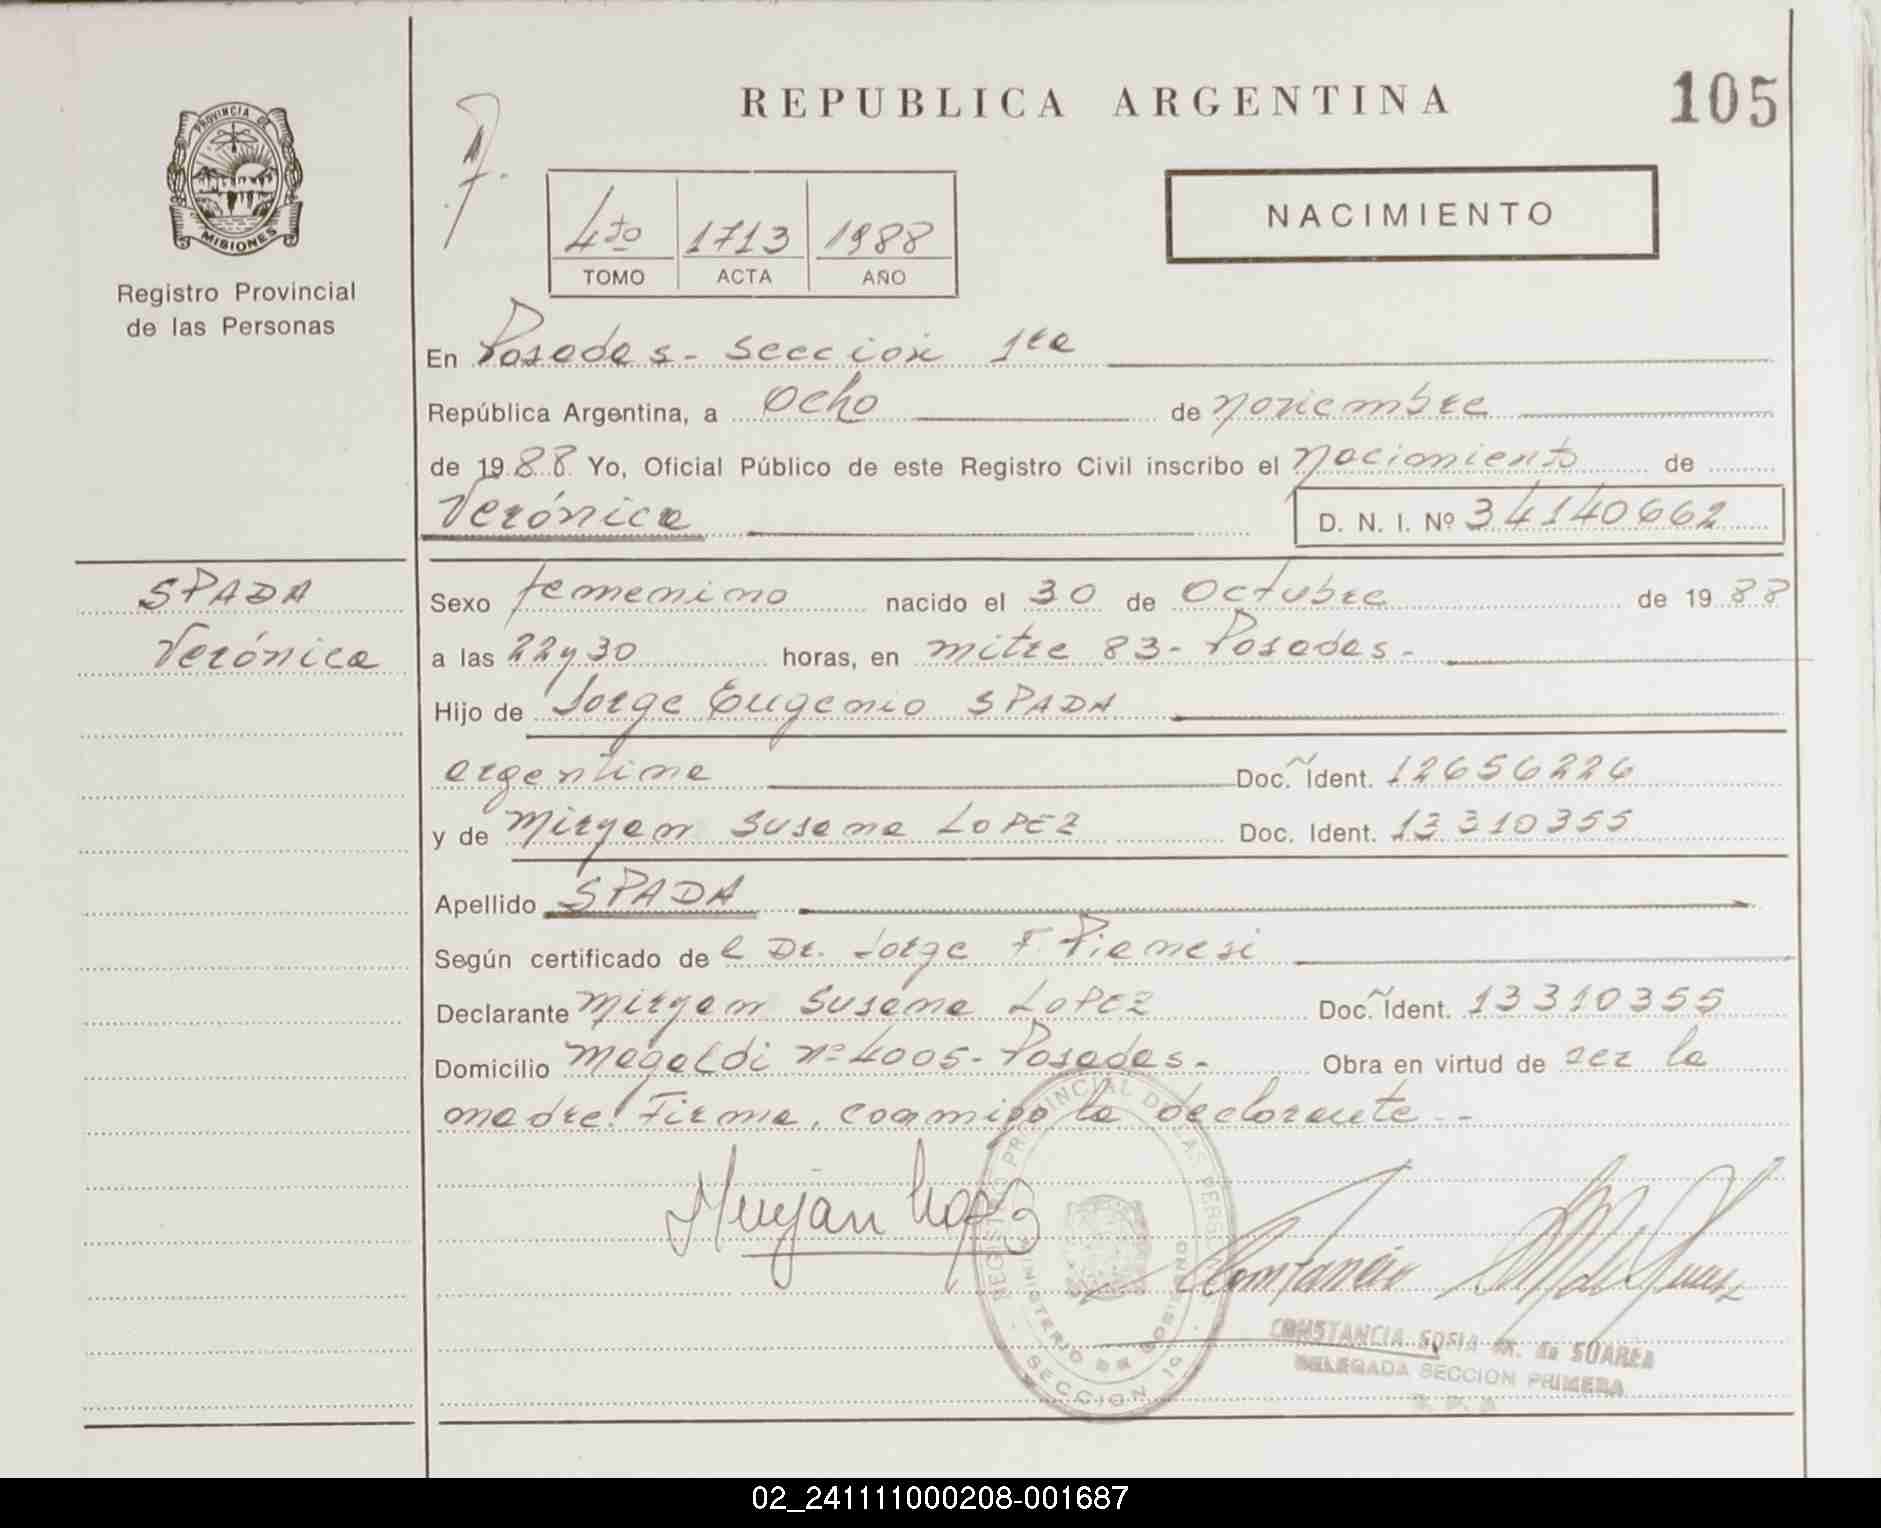 REPUBLICA ARGENTINA
105
PROVINCIA DE
MISIONES
Registro Provincial
de las Personas
4to 1713 1988
TOMO ACTA AÑO
NACIMIENTO
En Posadas - Sección 1ra
República Argentina, a Ocho de noviembre
de 1988 Yo, Oficial Público de este Registro Civil inscribo el nacimiento de
Verónica D. N. I. Nº 34140662
SPADA
Verónica
Sexo femenino nacido el 30 de Octubre de 1988
a las 22 y 30 horas, en mitre 83 - Posadas -
Hijo de Jorge Eugenio SPADA
argentina Doc. Ident. 12656226
y de Miryam Susana LOPEZ Doc. Ident. 13310355
Apellido SPADA
Según certificado de l Dr. Jorge F. Piemesi
Declarante Miryam Susana LOPEZ Doc. Ident. 13310355
Domicilio Magaldi nº 4005 - Posadas - Obra en virtud de ser la
madre. Firma, conmigo la declarante --
Miryan Lopez
REGISTRO PROVINCIAL DE LAS PERSONAS
MINISTERIO DE GOBIERNO
SECCION 1º
Constancia
CONSTANCIA SOSIA de SOAREA
DELEGADA SECCION PRIMERA
02_241111000208-001687